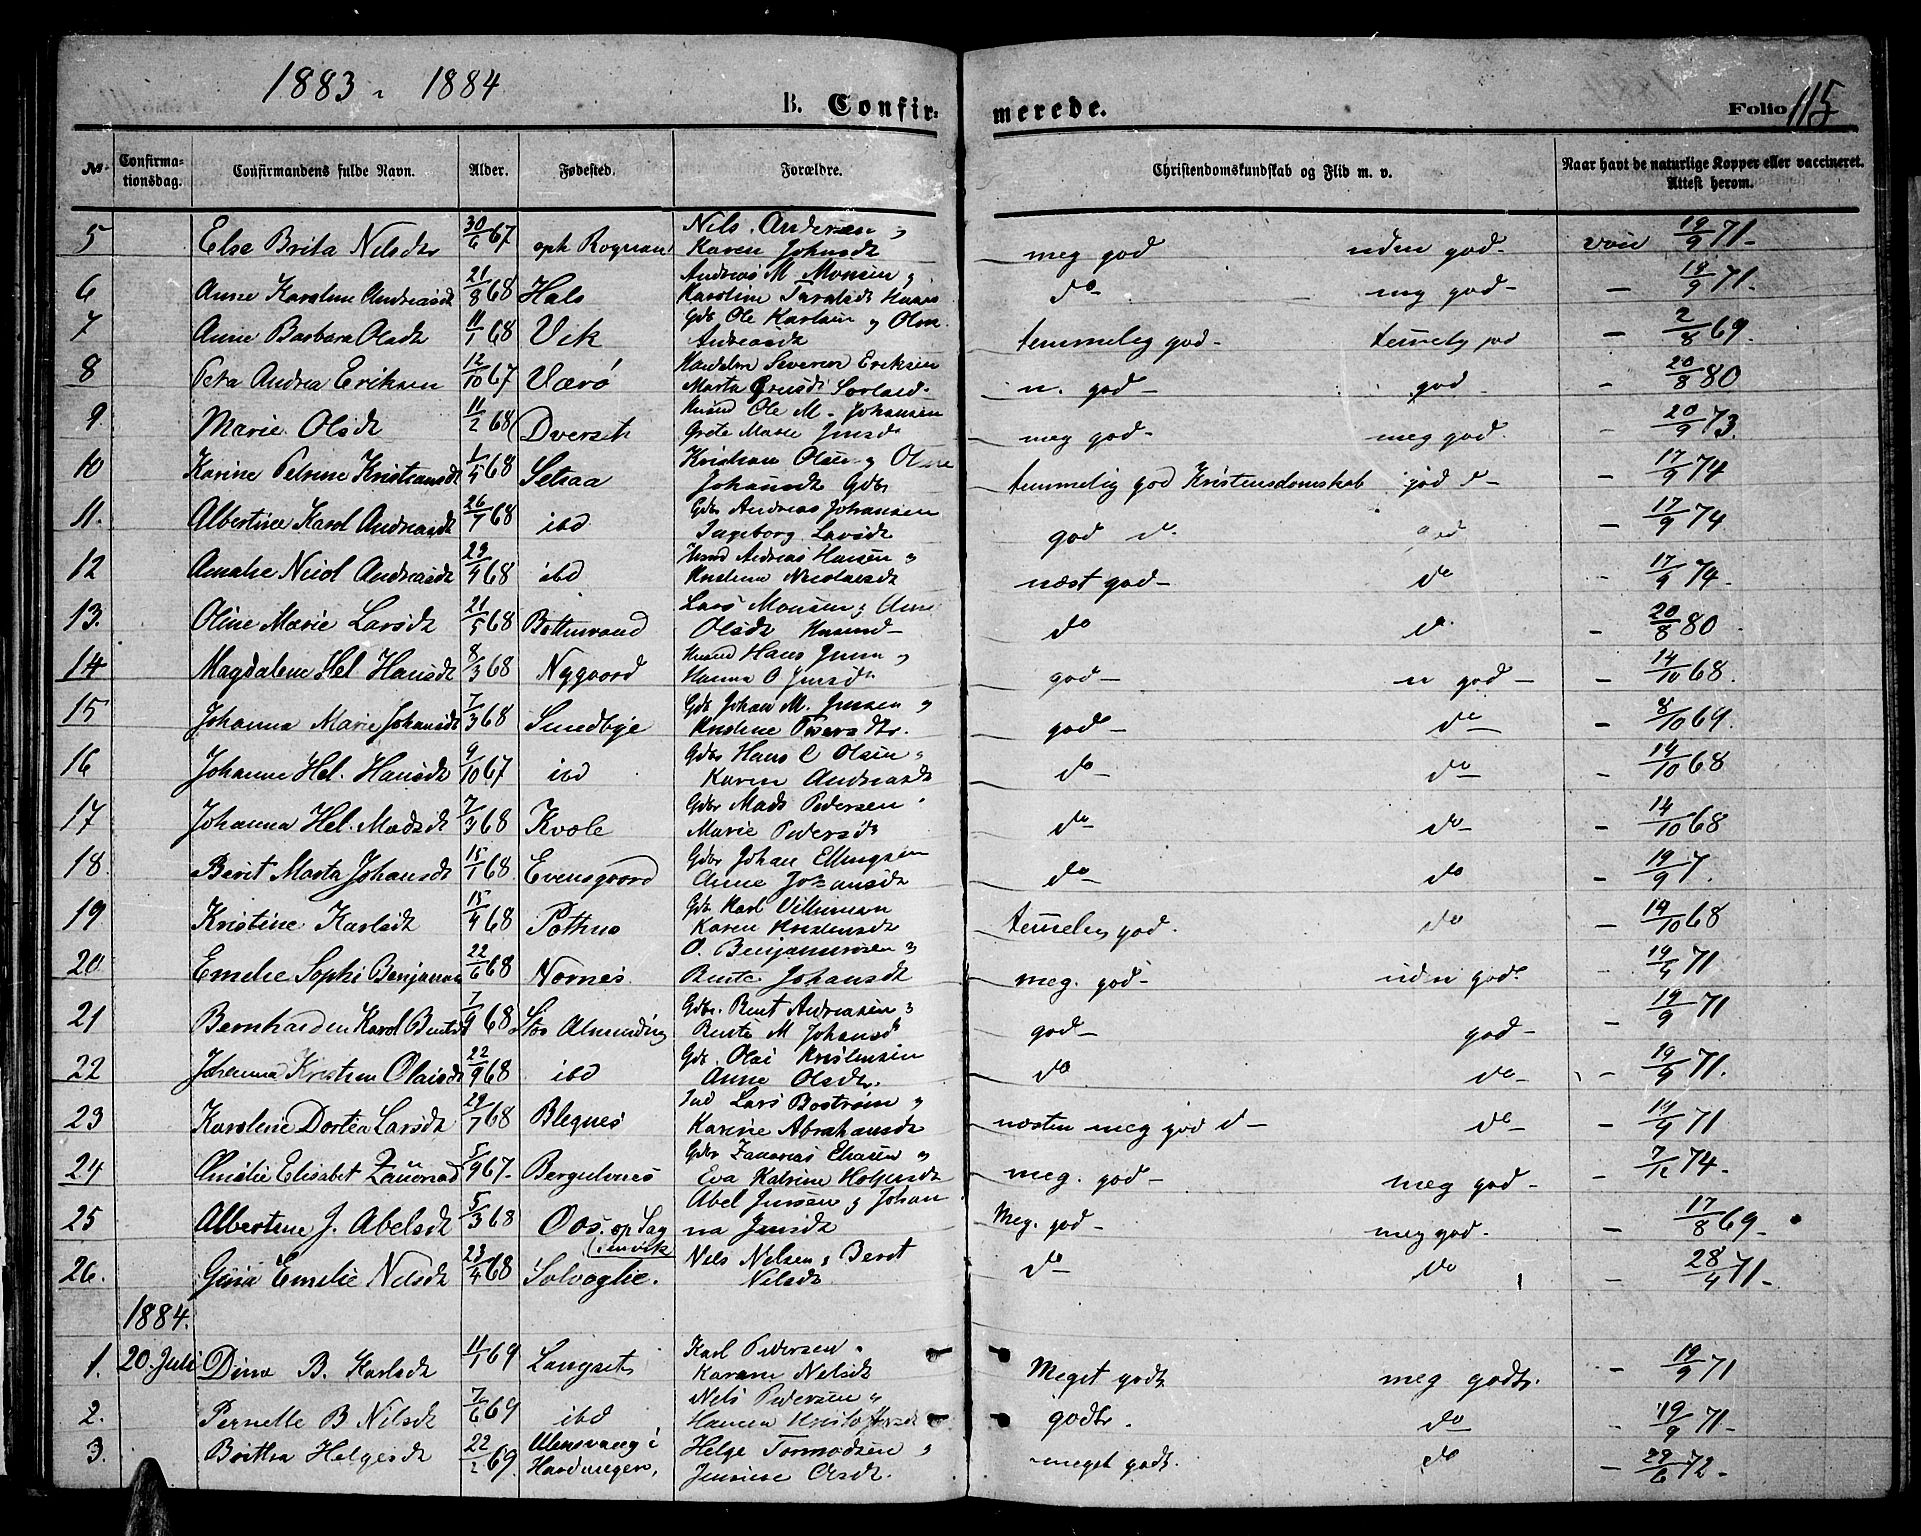 1883. 1884
B. Confirmerede. Folio 115
No. Confirmationsdag. Confirmandens fulde Navn. Alder. Fødested. Forældre. Christendomskundskab og Flid m. v. Naar havt de naturlige Kopper eller vaccineret. Attest herom.
5 Else Brita Nilsdtr 30/6 67 oph Rognan Nils Andersen og Karen Johnsdt meg god uden god- 19/9 71-
6 Anne Karoline Andreasdt 21/8 68 Hals Andreas M Monsen og Karoline do- meg god- - 19/9 71.
7 Anne Barbara Olsdt 11/1 68 Vik Gdb Ole Karlsen og Oline Andreasdt temmelig god- - 2/8 69.
8 Petra Andrea Eriksen 12/10 67 Værø Severin Eriksen Marta n. god- god - 20/8 80
9. Marie Olsdt 11/2 68 Dverset Husmd Ole M. Johansen Grete Marie Jensdt meg god- meg god. - 20/9 73.
10 Karine Petrine Kristiansdt 1/5 68 Setsaa Kristian Olsen og Oline Johansdt Gdbr temmelig god Kristensdomskab god d- - 17/9 74
11. Albertine Karol Andreasdt 26/7 68 ibd Gdbr Andreas Johansen Ingeborg Larsdt god d. god - 17/9 74
12 Amalie Nicol Andreasdt 23/9 68 ibd Husmd Andreas Hansen og Kristine Nicolaisdt næst god- do - 17/9 74.
13. Oline Marie Larsdt 21/5 68 Botnvand Lars Monsen og Anne Olsdt Husmd- do do - 20/8 80
14 Magdalene Hel Hansdt 8/3 68 Nygaard Husmd Hans Jensen og Hanna O Jensdt god- n god- - 14/10 68.
15 Johanna Marie Johansdt 7/3 68 Sundbye Gdb Johan M. Jensen og Kristine Pedersdtr. god- do- - 8/10 69.
16 Johanne Hel. Hansdt 9/10 67 ibd Gdbr Hans C Olsen Karen Andreasdt do- do- - 14/10 68
17 Johanna Hel. Madsdt 7/3 68 Kvale Gdbr Mads Pedersen Marie Pedersdt do- do- - 14/10 68
18. Berit Marta Johansdt 15/1 68. Evensgaard Gdbr Johan Ellingsen Anne Johansdt do- do - 19/9 7.
19 Kristine Karlsdt 15/4 68 Pothus Gdb Karl Karen god. do - 14/10 68
20 Emelie Sophi Benjamin 22/6 68 Nornes O. Benjaminsen og Bente Johansdt meg. god- uden god. - 19/9 71
21 Karol Bentsdt 7/9 68 Stor Almending Gdbr. Bent Andreasen og Bente M Johansdt god- god- - 19/9 71
22 Johanna Kristine Olaisdt 22/9 68 ibd Gdb. Olai Kristensen Anne Olsdtr. do do- - 19/9 71.
23 Karoline Dortea Larsdt 29/7 68 Blegnes Ind Lars Bostrøm og Karine Abrahamsdt næsten meg god d- do- - 19/9 71
24 Amalie Elisabet 5/9 67- Bergulvnes Gdbr Eliasen og Eva Katrine meg. god- meg god- - 7/12 74-
25 Albertine J. Abelsdt 5/3 68 Oos. op Sag Abel Jensen og Johanna Jensdt Meg. god- meg god. - 17/8 69-
26. Gina Emelie Nilsdt 23/4 68 Solvaglie. Nils Nilsen og Beret Nilsdt do- do - 28/4 71-
1884.
1. 20. Juli Dina B. Karlsdt 11/1 69 Langset Karl Pedersen Karann Nilsdt Meget godt meg godt. - 19/9 71
2. Pernelle B Nilsdt 7/6 69 ibd Nils Pedersen og Hanna godt. do - 19/9 71-
3. Brittha Helgesdt 22/2 69. Ulensvang i Hardanger, Helge Tormodsen og meget godt. do - 29/6 72-